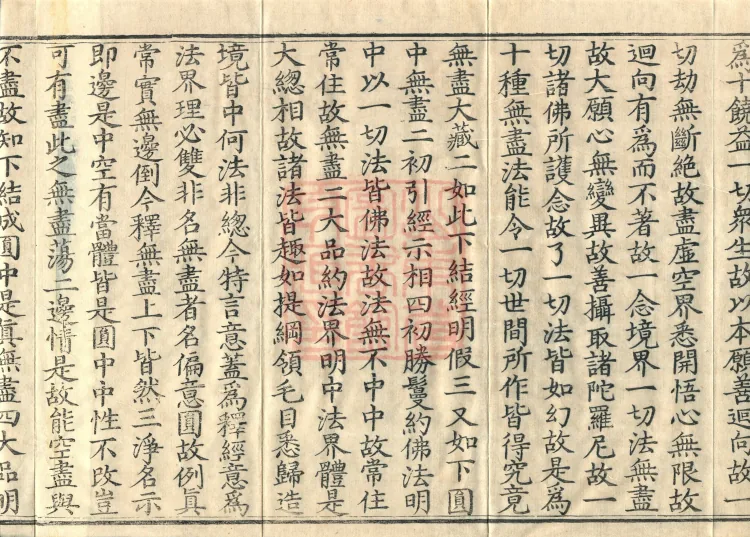 爲十饒益一切衆生故以本願善迴向故一
切劫無斷絶故盡虛空界悉開悟心無限故
迴向有爲而不著故一念境界一切法無盡
故大願心無變異故善攝取諸陀羅尼故一
切諸佛所護念故了一切法皆如幻故是爲
十種無盡法能令一切世間所作皆得究竟
無盡大藏二如此下結經明假三又如下圓
中無盡二初引經示相四初勝鬘約佛法明
中以一切法皆佛法故法無不中中故常住
常住故無盡二大品約法界明中法界體是
大總相故諸法皆趣如提綱領毛目悉歸造
境皆中何法非總今特言意蓋爲釋經意爲
法界理必雙非名無盡者名偏意圓故例眞
常實無邊倒今釋無盡上下皆然三淨名示
即邊是中空有當體皆是圓中中性不改豈
可有盡此之無盡蕩二邊情是故能空盡與
不盡故知下結成圓中是眞無盡四大品明